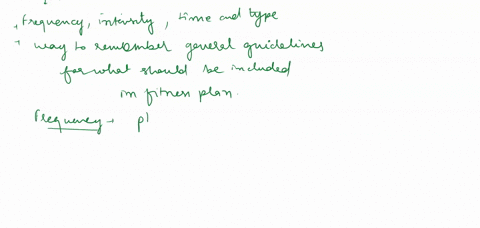 → frequency, intensity, time and type
→ way to remember general guidelines
for what should be included
in fitness plan.
Frequency → p